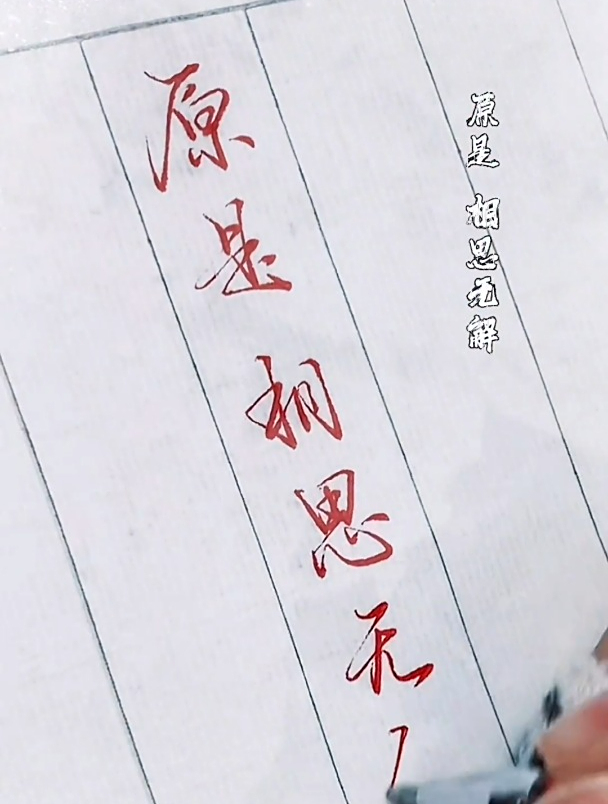 原是 相思无解
原是相思无